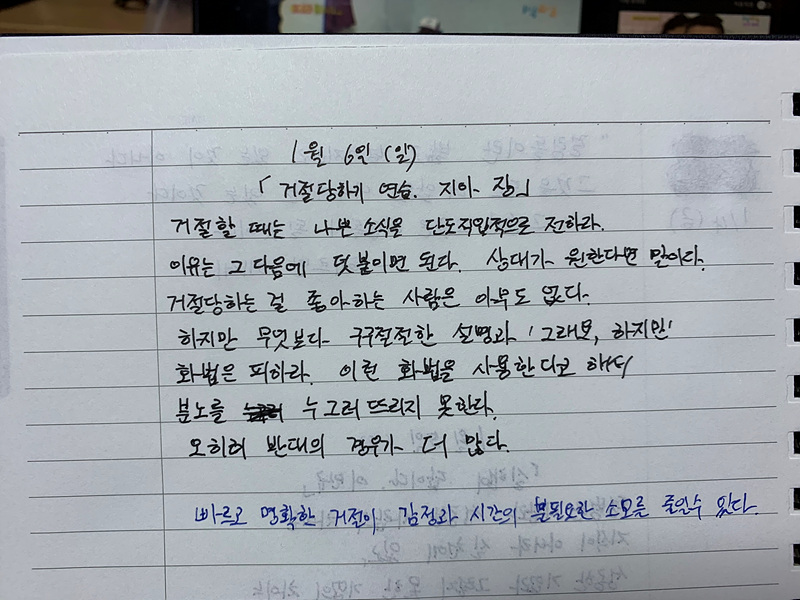 1월 6일 (일)
「거절당하기 연습. 지아 장」
거절할 때는 나쁜 소식을 단도직입적으로 전하라.
이유는 그 다음에 덧붙이면 된다. 상대가 원한다면 말이다.
거절당하는 걸 좋아하는 사람은 아무도 없다.
하지만 무엇보다 구구절절한 설명과 '그래요, 하지만'
화법은 피하라. 이런 화법을 사용한다고 해서
분노를 누그러뜨리지 못한다.
오히려 반대의 경우가 더 많다.
빠르고 명확한 거절이 감정과 시간의 불필요한 소모를 줄일수 있다.